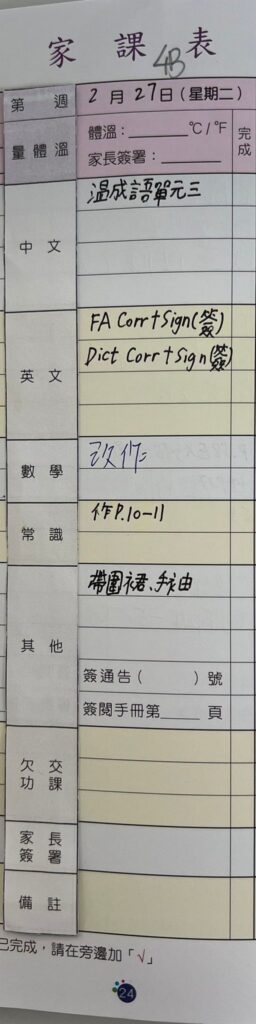 家課表
4B
第 週 2月27日(星期二)
量體溫 體溫：______℃/℉ 完成
家長簽署：______
中文 溫成語單元三
英文 FA Corr+Sign(簽)
Dict Corr+Sign(簽)
數學 改作
常識 作P.10-11
其他 帶圍裙、手袖
簽通告( )號
簽閱手冊第____頁
欠交功課
家長簽署
備註
已完成，請在旁邊加「√」
24